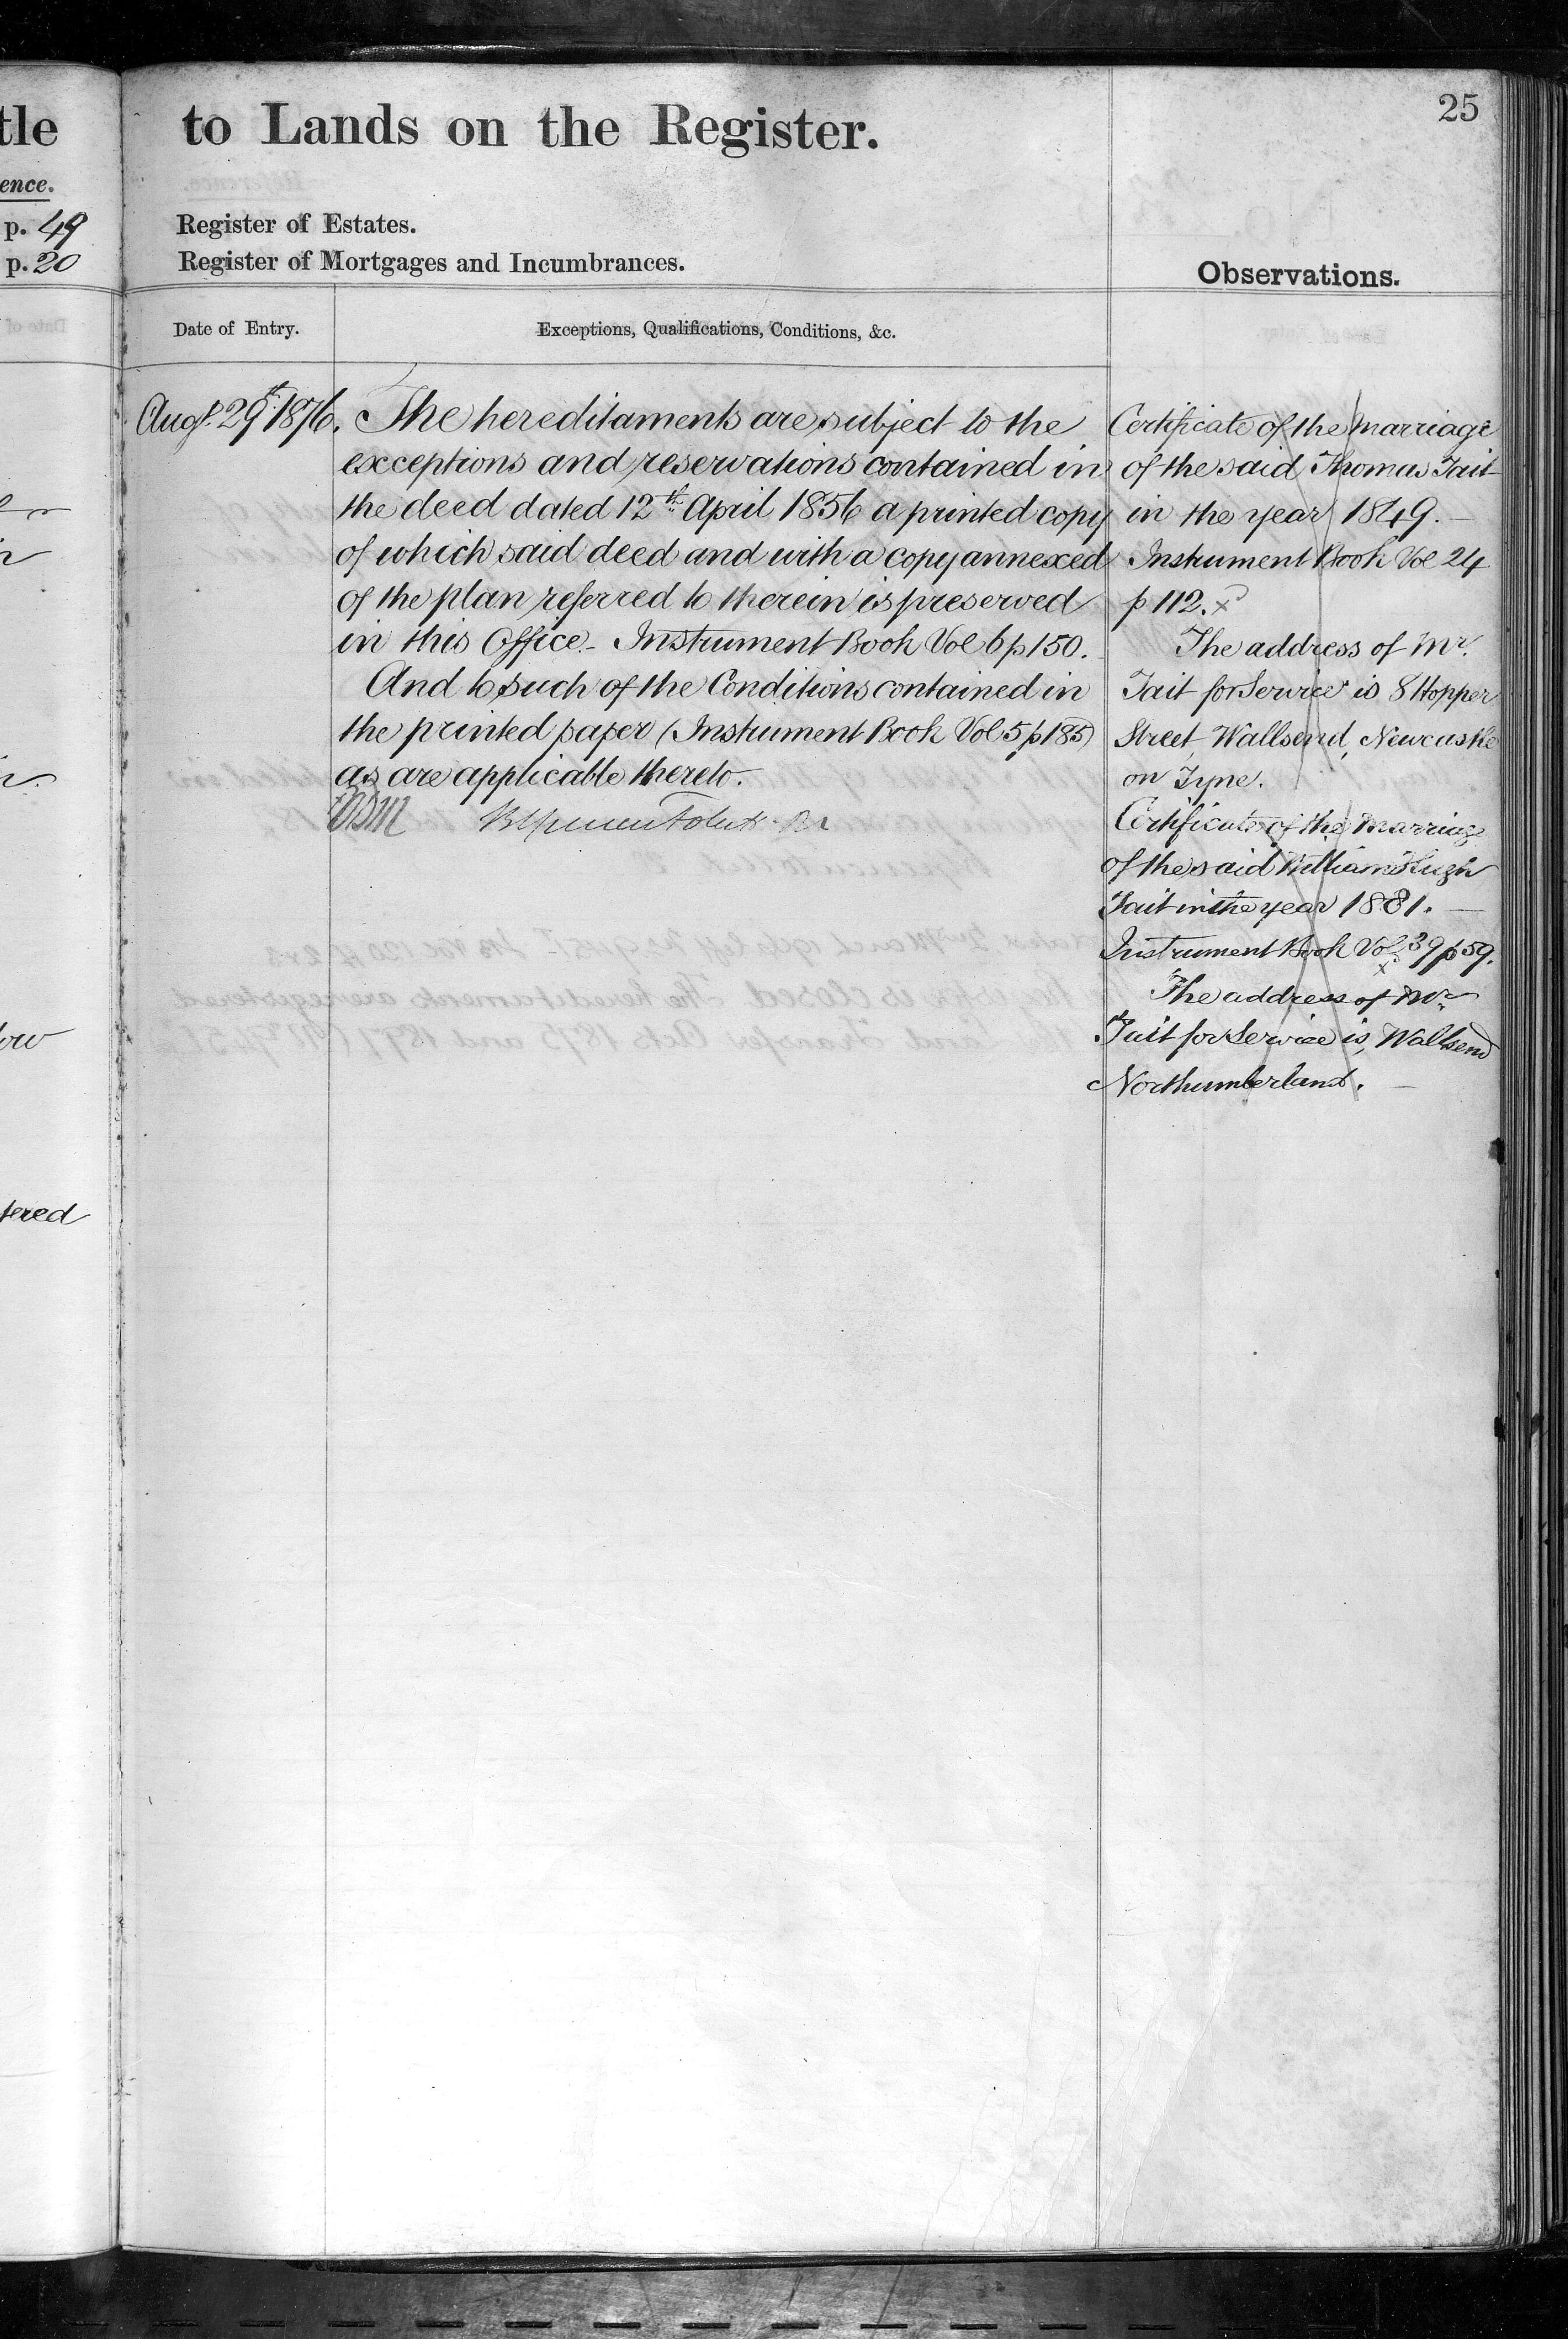 tle
ence.
p. 49
p. 20
tered
25
to Lands on the Register.
Register of Estates.
Register of Mortgages and Incumbrances.
Observations.
Date of Entry.
Exceptions, Qualifications, Conditions, &c.
Augt. 29th 1876.
The hereditaments are subject to the
exceptions and reservations contained in
the deed dated 12th April 1856 a printed copy
of which said deed and with a copy annexed
of the plan referred to therein is preserved
in this Office. - Instrument Book Vol 6 p 150.
And to such of the Conditions contained in
the printed paper (Instrument Book Vol 5 p 185)
as are applicable thereto.
Certificate of the marriage
of the said Thomas Tait
in the year 1849. -
Instrument Book Vol 24
p 112. x
The address of Mr.
Tait for Service is 8 Hopper
Street Wallsend, Newcastle
on Tyne.
Certificate of the Marriage
of the said William Hugh
Tait in the year 1881. -
Instrument Book Vol 39 p 59.
x
The address of Mr
Tait for Service is, Wallsend
Northumberland. -